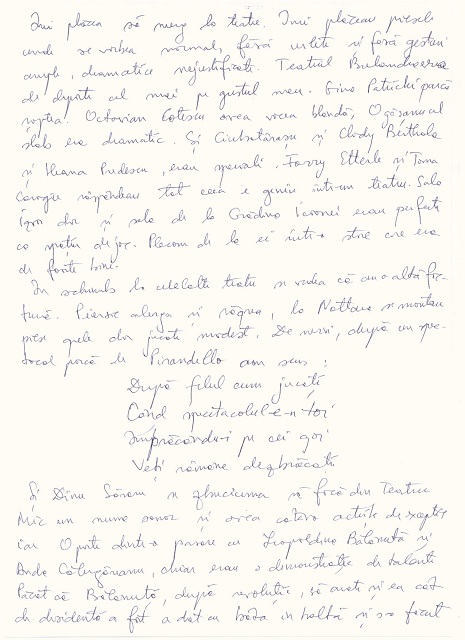 Îmi plăcea să merg la teatru. Îmi plăceau piesele
unde se vorbea normal, fără urlete și fără gesturi
ample, dramatice nejustificate. Teatrul Bulandra era
de departe cel mai pe gustul meu. Gina Patrichi parcă
șoptea. Octavian Cotescu avea vocea blândă, Ogășanu cel
slab era dramatic. Și Ciubotărașu și Clody Berthola
și Ileana Predescu, erau speciali. Forry Etterle și Toma
Caragiu răspândeau tot ceea e geniu într-un teatru. Sala
Izvor dar și sala de la Grădina Icoanei erau perfecte
ca spațiu de joc. Plecam de la ei într-o stare care era
de foarte bine.
În schimb la celelalte teatre se vedea că au o altă fac-
tură. Piersic alerga și răgea, la Nottara se montau
piese grele dar jucate modest. De nervi, după un spec-
tacol parcă de Pirandello am scris :
După felul cum jucați
Când spectacolul-e-n toi
Îmbrăcându-i pe cei goi
Veți rămâne dezbrăcați
Și Dinu Săraru se zbuciuma să facă din Teatru
Mic un nume sonor și avea câteva actrițe de excepție
iar O pată dintr-o pasare cu Leopoldina Bălănuță și
Anda Călugăreanu, chiar erau o demonstrație de talent.
Păcat că Bălănuță, după revoluție, să arate și ea cât
de disidentă a fost a dat cu bâta în baltă și s-a făcut